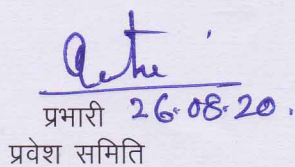 प्रभारी 26.08.20.
प्रवेश समिति